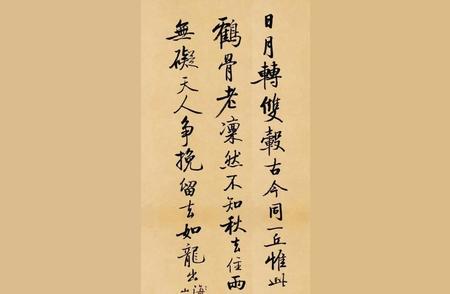 日月轉雙轂古今同一丘惟此
鶴骨老凜然不知秋去住兩
無礙天人争挽留去如龍出
山